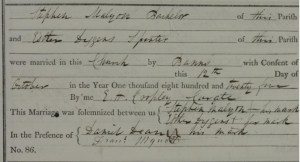 Stephen Malyon Bachelor of this Parish
and Esther Diggens Spinster of this Parish
were married in this Church by Banns with Consent of
this 12th Day of
October in the Year One thousand eight hundred and twenty four
By me E. A. Curate
This Marriage was solemnized between us Stephen Malyon his mark
Esther Diggens her mark
In the Presence of Daniel his mark
Grant
No. 86.